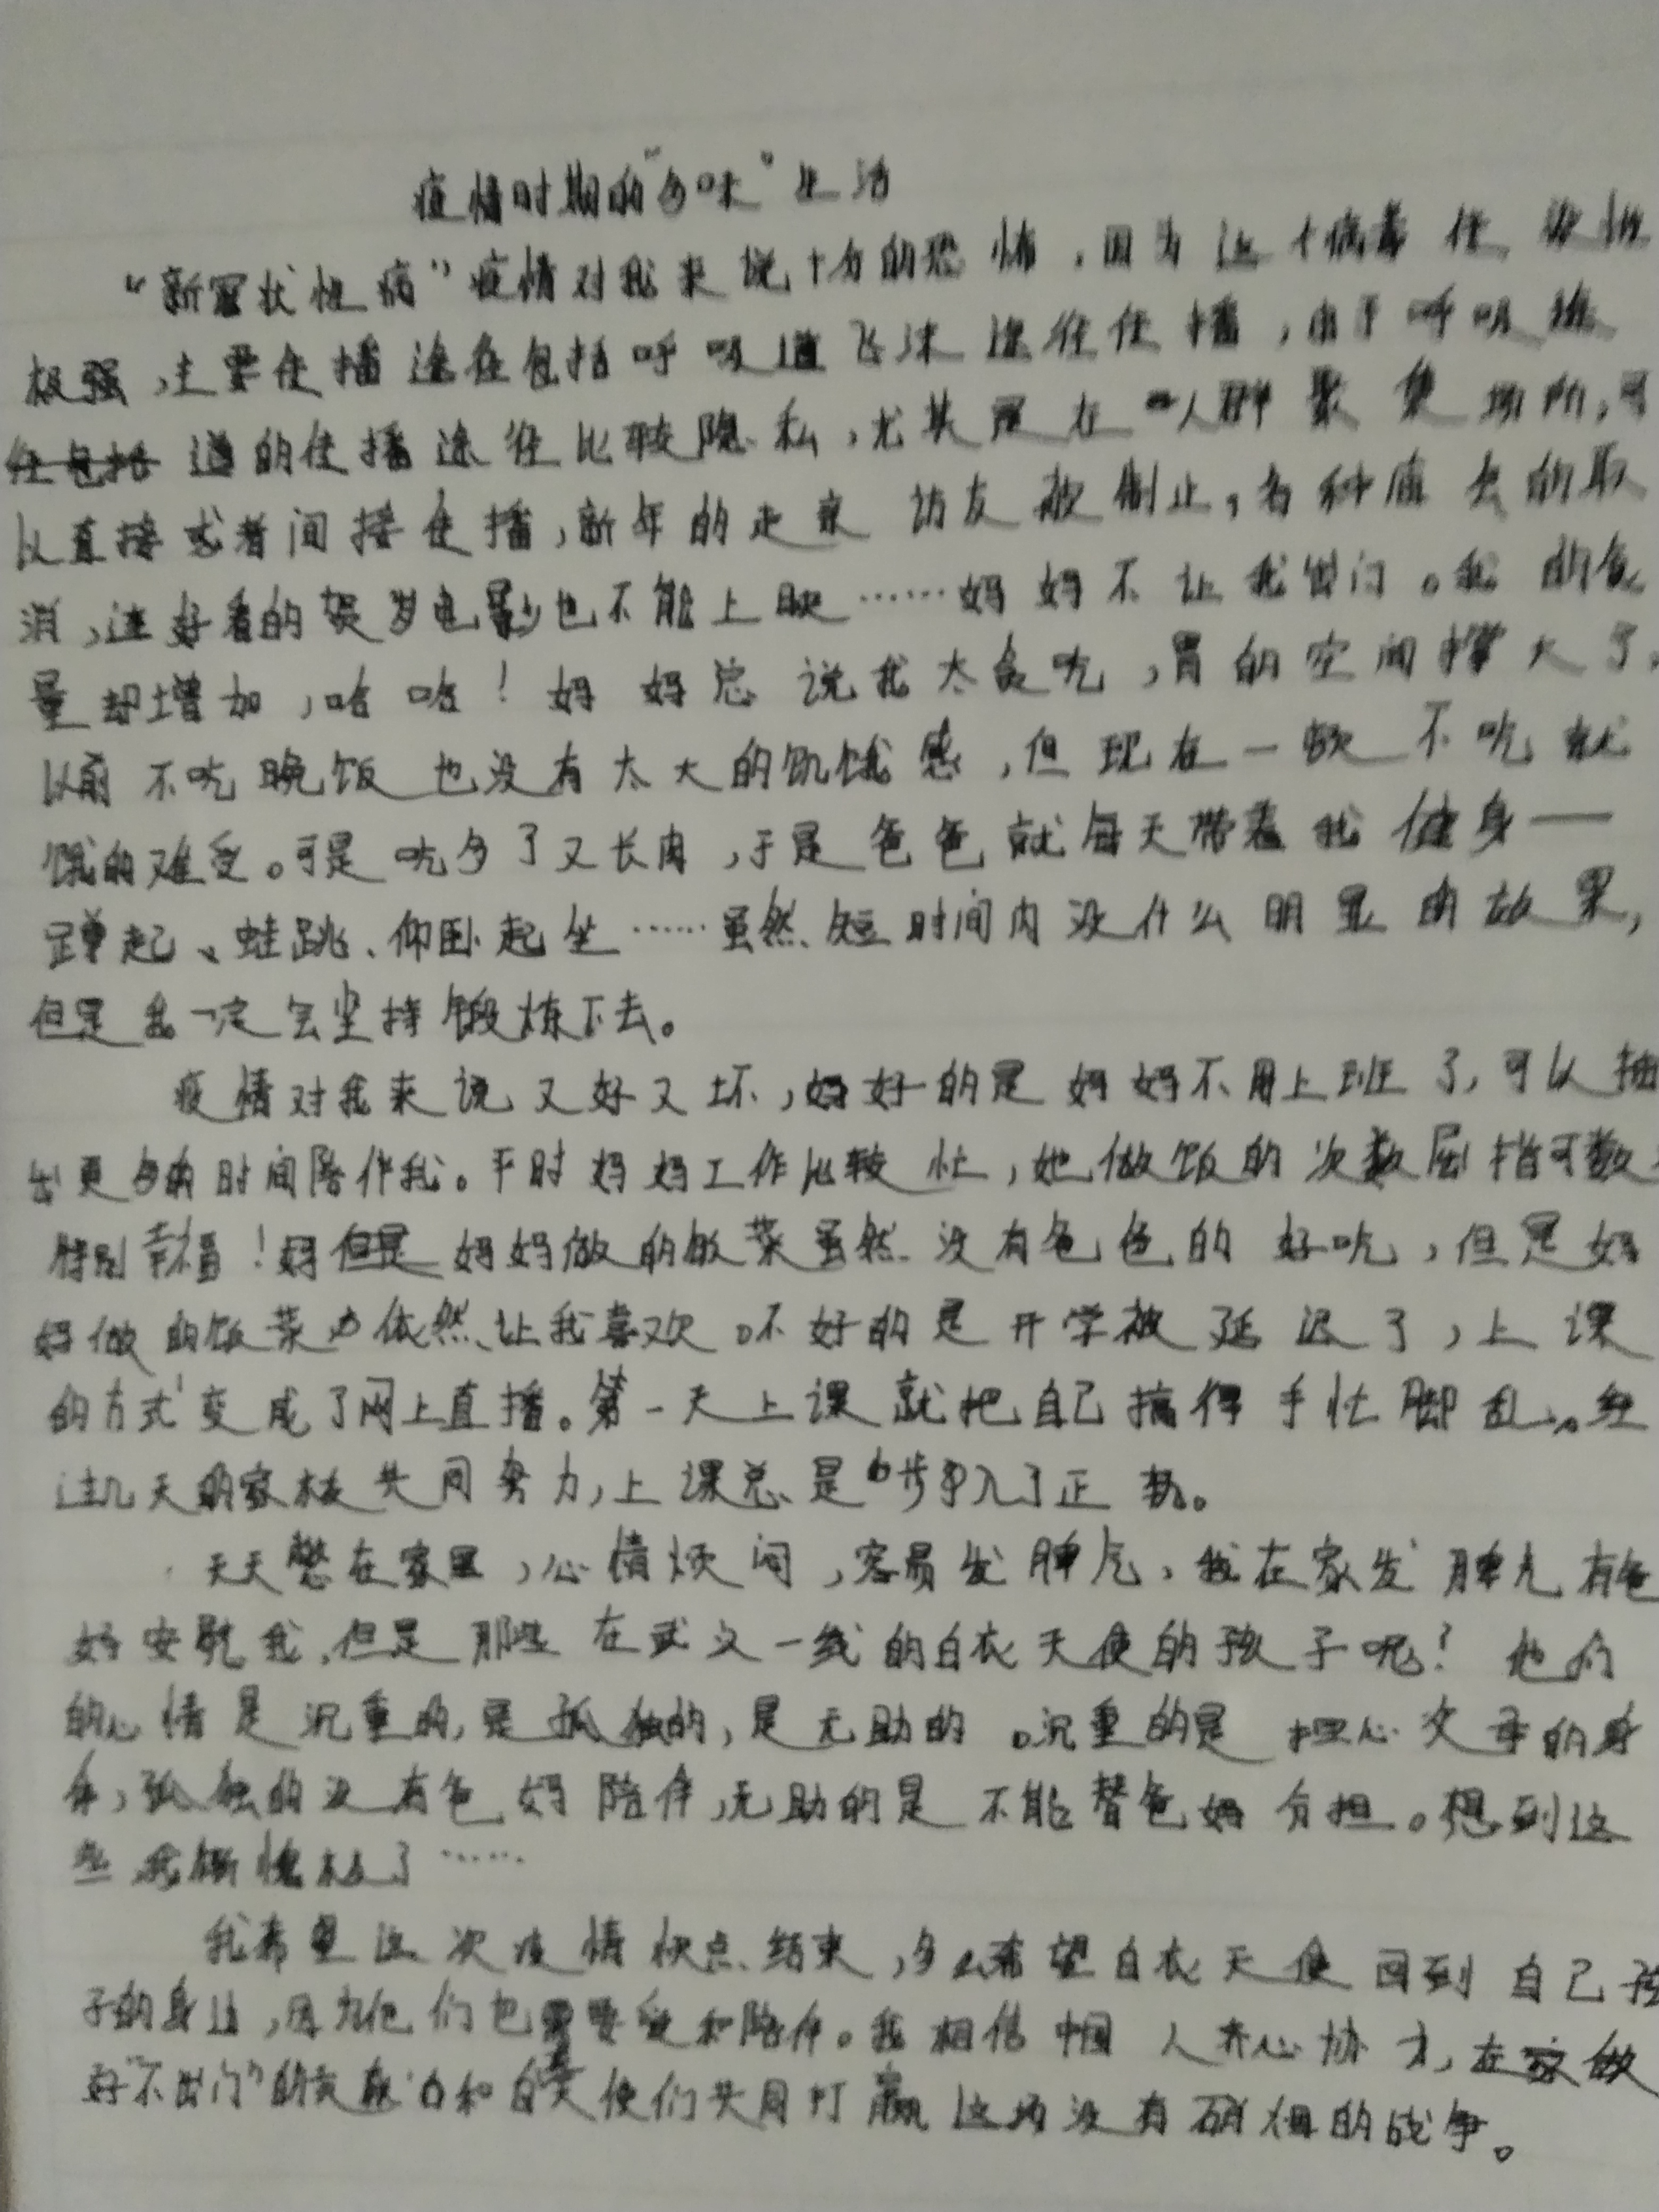 疫情时期的“多味”生活
“新冠状性病”疫情对我来说十分的恐怖,因为这个病毒传染性
极强,主要传播途径包括呼吸道飞沫途径传播,由于呼吸
道的传播途径比较隐私,尤其是在人群聚集场所,可
以直接或者间接传播,新年的走亲访友被制止,各种庙会的取
消,连好看的贺岁电影也不能上映……妈妈不让我出门。我的食
量却增加,哈哈!妈妈总说我太贪吃,胃的空间撑大了,
以前不吃晚饭也没有太大的饥饿感,但现在一顿不吃就
饿的难受。可是吃多了又长肉,于是爸爸就每天带着我健身——
蹲起、蛙跳、仰卧起坐……虽然短时间内没什么明显的效果,
但是我一定会坚持锻炼下去。
疫情对我来说又好又坏,好的是妈妈不用上班了,可以抽
出更多的时间陪伴我。平时妈妈工作比较忙,她做饭的次数屈指可数
特别幸福!但是妈妈做的饭菜虽然没有爸爸的好吃,但是妈
妈做的饭菜也依然让我喜欢。不好的是开学被延迟了,上课
的方式变成了网上直播。第一天上课就把自己搞得手忙脚乱。经
过几天的家校共同努力,上课总是步入了正轨。
天天憋在家里,心情烦闷,容易发脾气,我在家发脾气有爸
妈安慰我,但是那些在武汉一线的白衣天使的孩子呢?他们
的心情是沉重的,是孤独的,是无助的。沉重的是担心父母的身
体,孤独的没有爸妈陪伴,无助的是不能替爸妈分担。想到这
些我惭愧极了……
我希望这次疫情快点结束,多么希望白衣天使回到自己孩
子的身边,因为他们也需要爱和陪伴。我相信中国人齐心协力,在家做
好“不出门”的贡献和白衣天使们共同打赢这场没有硝烟的战争。